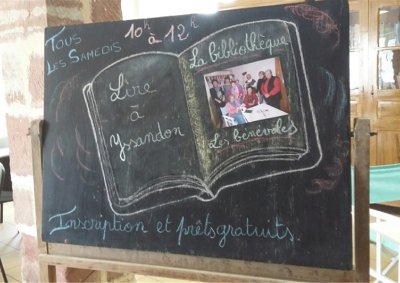 Tous
les Samedis
10h à 12h
Lire
à
Yssandon
La bibliothèque
Les bénévoles
Inscription et prêts gratuits.